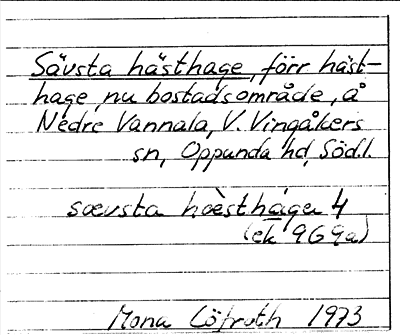 Sävsta hästhage, förr häst-
hage, nu bostadsområde, å
Nedre Vannala, V. Vingåkers
sn, Oppunda hd, Södl.
sævsta hæ̀sthágen 4
(ek 969a)
Mona Löfroth 1973